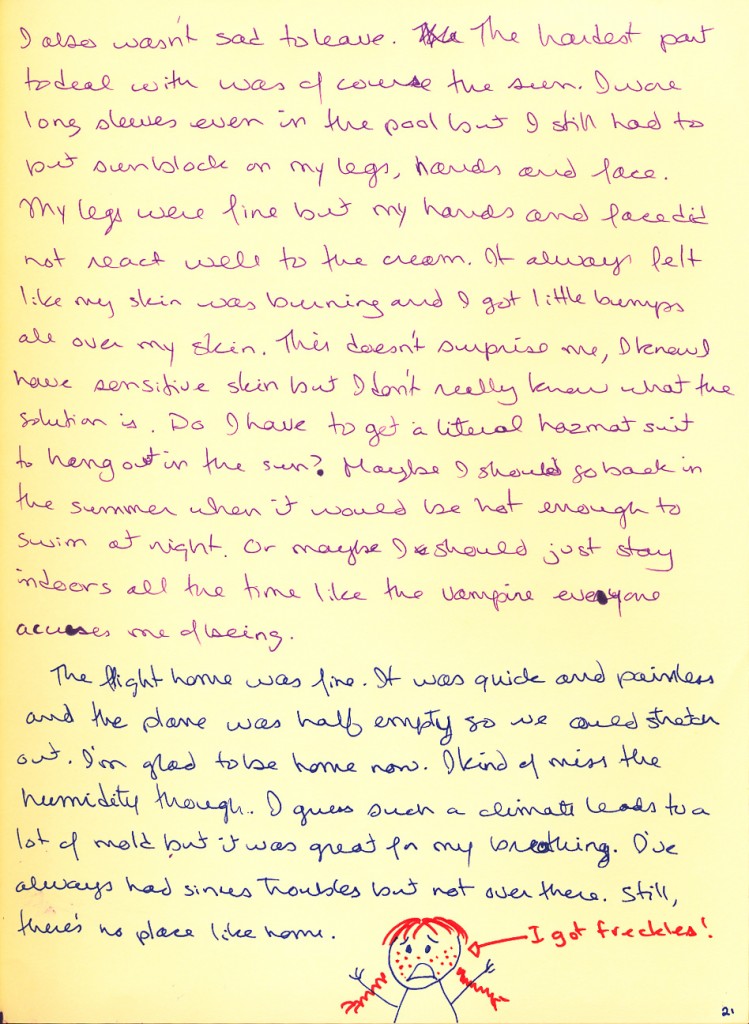 I also wasn't sad to leave. The hardest part
to deal with was of course the sun. I wore
long sleeves even in the pool but I still had to
put sunblock on my legs, hands and face.
My legs were fine but my hands and face did
not react well to the cream. It always felt
like my skin was burning and I got little bumps
all over my skin. This doesn't surprise me, I know I
have sensitive skin but I don't really know what the
solution is. Do I have to get a literal hazmat suit
to hang out in the sun? Maybe I should go back in
the summer when it would be hot enough to
swim at night. Or maybe I should just stay
indoors all the time like the vampire everyone
accuses me of being.
The flight home was fine. It was quick and painless
and the plane was half empty so we could stretch
out. I'm glad to be home now. I kind of miss the
humidity though. I guess such a climate leads to a
lot of mold but it was great for my breathing. I've
always had sinus troubles but not over there. Still,
there's no place like home.
I got freckles!
21